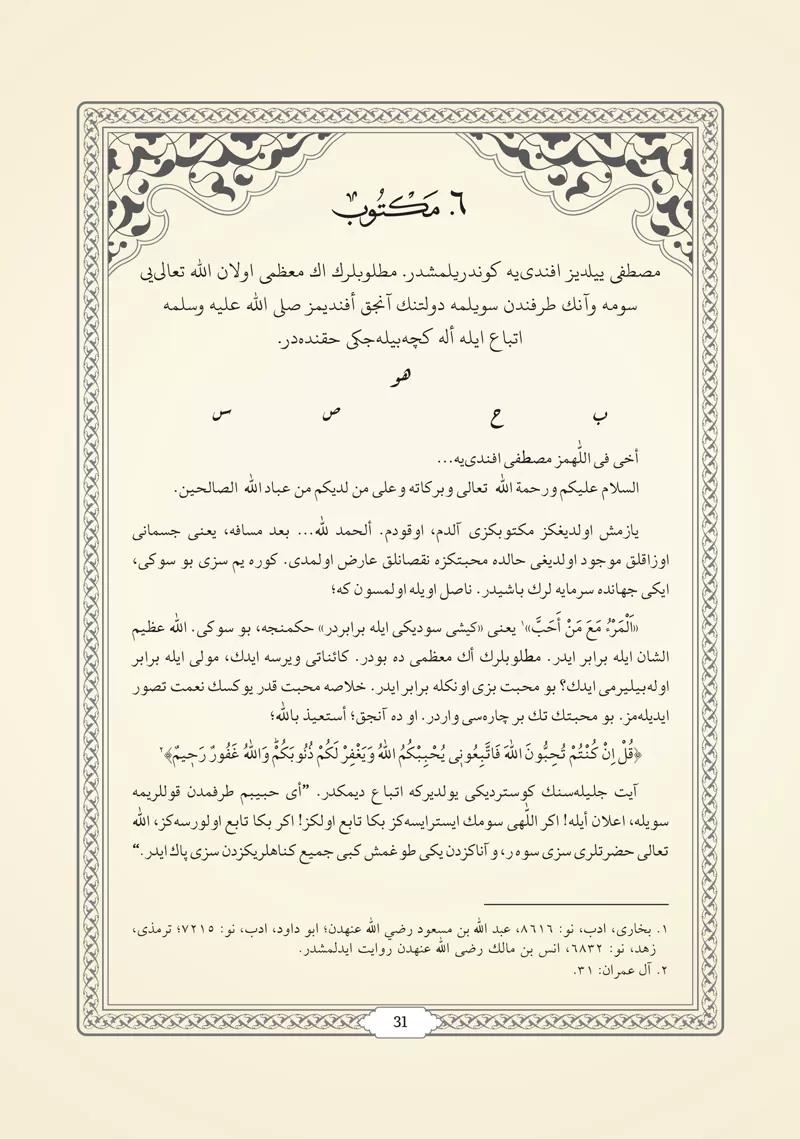 ٦. مَكْتُوب
مصطفى ييلديز افندى‌يه كوندريلمشدر. مطلوبلرك اك معظمى اولان الله تعالى‌يى
سومه وآنك طرفندن سويلمه دولتنك آنجق أفنديمز صلى الله عليه وسلمه
اتباع ايله أله كچه‌بيله‌جكى حقنده‌در.
هو
ب ح ص س
أخى فى اللّٰهمز مصطفى افندى‌يه...
السلام عليكم ورحمة الله تعالى وبركاته وعلى من لديكم من عباد الله الصالحين.
يازمش اولديغكز مكتوبكزى آلدم، اوقودم. ألحمد لله... بعد مسافه، يعنى جسمانى
اوزاقلق موجود اولديغى حالده محبتكزه نقصانلق عارض اولمدى. كوره يم سزى بو سوكى،
ايكى جهانده سرمايه لرك باشيدر. ناصل اويله اولمسون كه؛
«اَلْمَرْءُ مَعَ مَنْ أَحَبَّ»١ يعنى «كيشى سوديكى ايله برابردر» حكمنجه، بو سوكى. الله عظيم
الشان ايله برابر ايدر. مطلوبلرك أك معظمى ده بودر. كائناتى ويرسه ايدك، مولى ايله برابر
اوله‌بيليرمى ايدك؟ بو محبت بزى اونكله برابر ايدر. خلاصه محبت قدر يوكسك نعمت تصور
ايديله‌مز. بو محبتك تك بر چاره‌سى واردر. او ده آنجق؛ أستعيذ بالله؛
﴿قُلْ اِنْ كُنْتُمْ تُحِبُّونَ اللهَ فَاتَّبِعُونٖى يُحْبِبْكُمُ اللهُ وَيَغْفِرْ لَكُمْ ذُنُوبَكُمْ وَاللهُ غَفُورٌ رَحٖيمٌ﴾٢
آيت جليله‌سنك كوسترديكى يولديركه اتباع ديمكدر. ”أى حبيبم طرفمدن قوللريمه
سويله، اعلان أيله! اكر اللّٰهى سومك ايسترايسه‌كز بكا تابع اولكز! اكر بكا تابع اولورسه‌كز، الله
تعالى حضرتلرى سزى سوه ر، و آناكزدن يكى طوغمش كبى جميع كناهلريكزدن سزى پاك ايدر.“
١. بخارى، ادب، نو: ٨٦١٦، عبد الله بن مسعود رضي الله عنهدن؛ ابو داود، ادب، نو: ٧٢١٥؛ ترمذى،
زهد، نو: ٦٨٣٢، انس بن مالك رضى الله عنهدن روايت ايدلمشدر.
٢. آل عمران: ٣١.
31